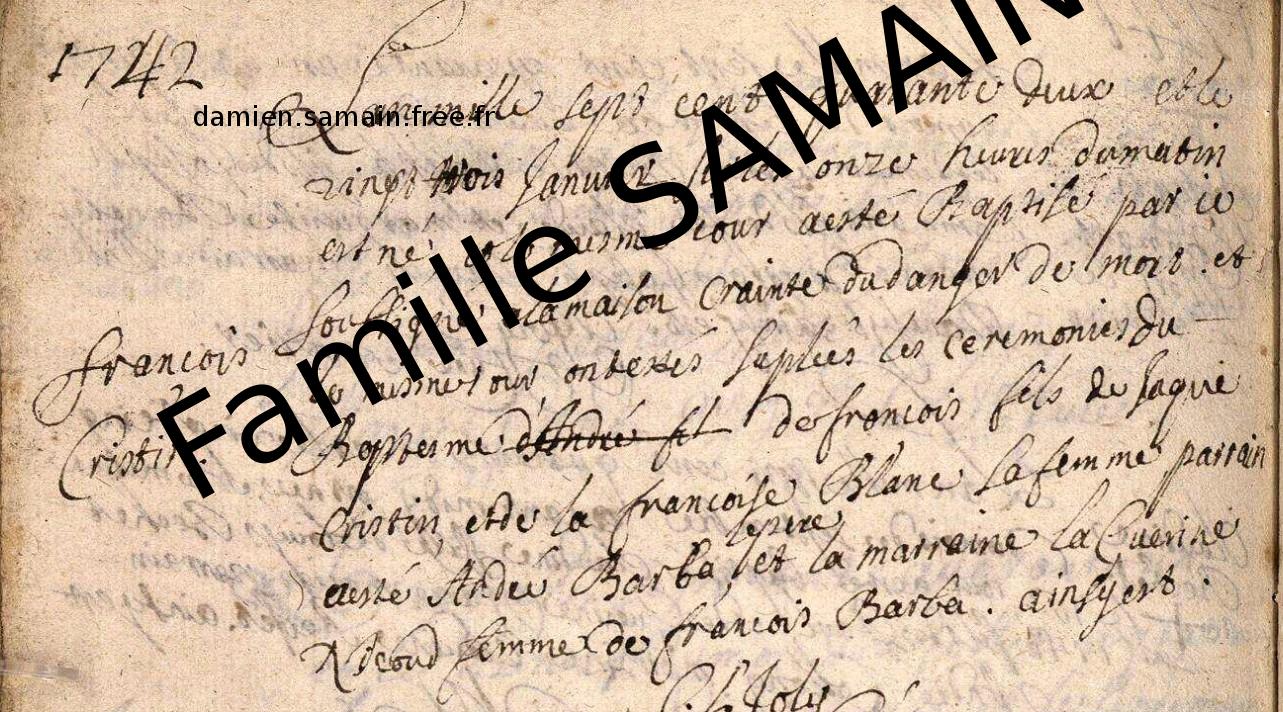 1742
damien.samain.free.fr
Famille SAMAIN
Lan mille sept cent quarante deux et le
vinpt trois Janvier onze heures du matin
est né mesme jour aesté Baptisé par je
soussigné a la maison crainte du danger de mort et
françois
le mesme jour ont estés suplées les ceremonies du
Cristin
Bapteme d'André fil de françois fils de Jaque
Cristin, et de la françoise Blanc sa femme parrain
aesté André Barba le pere, et la marraine la Guerine
Nicoud femme de françois Barba. ainsy est.
Joly